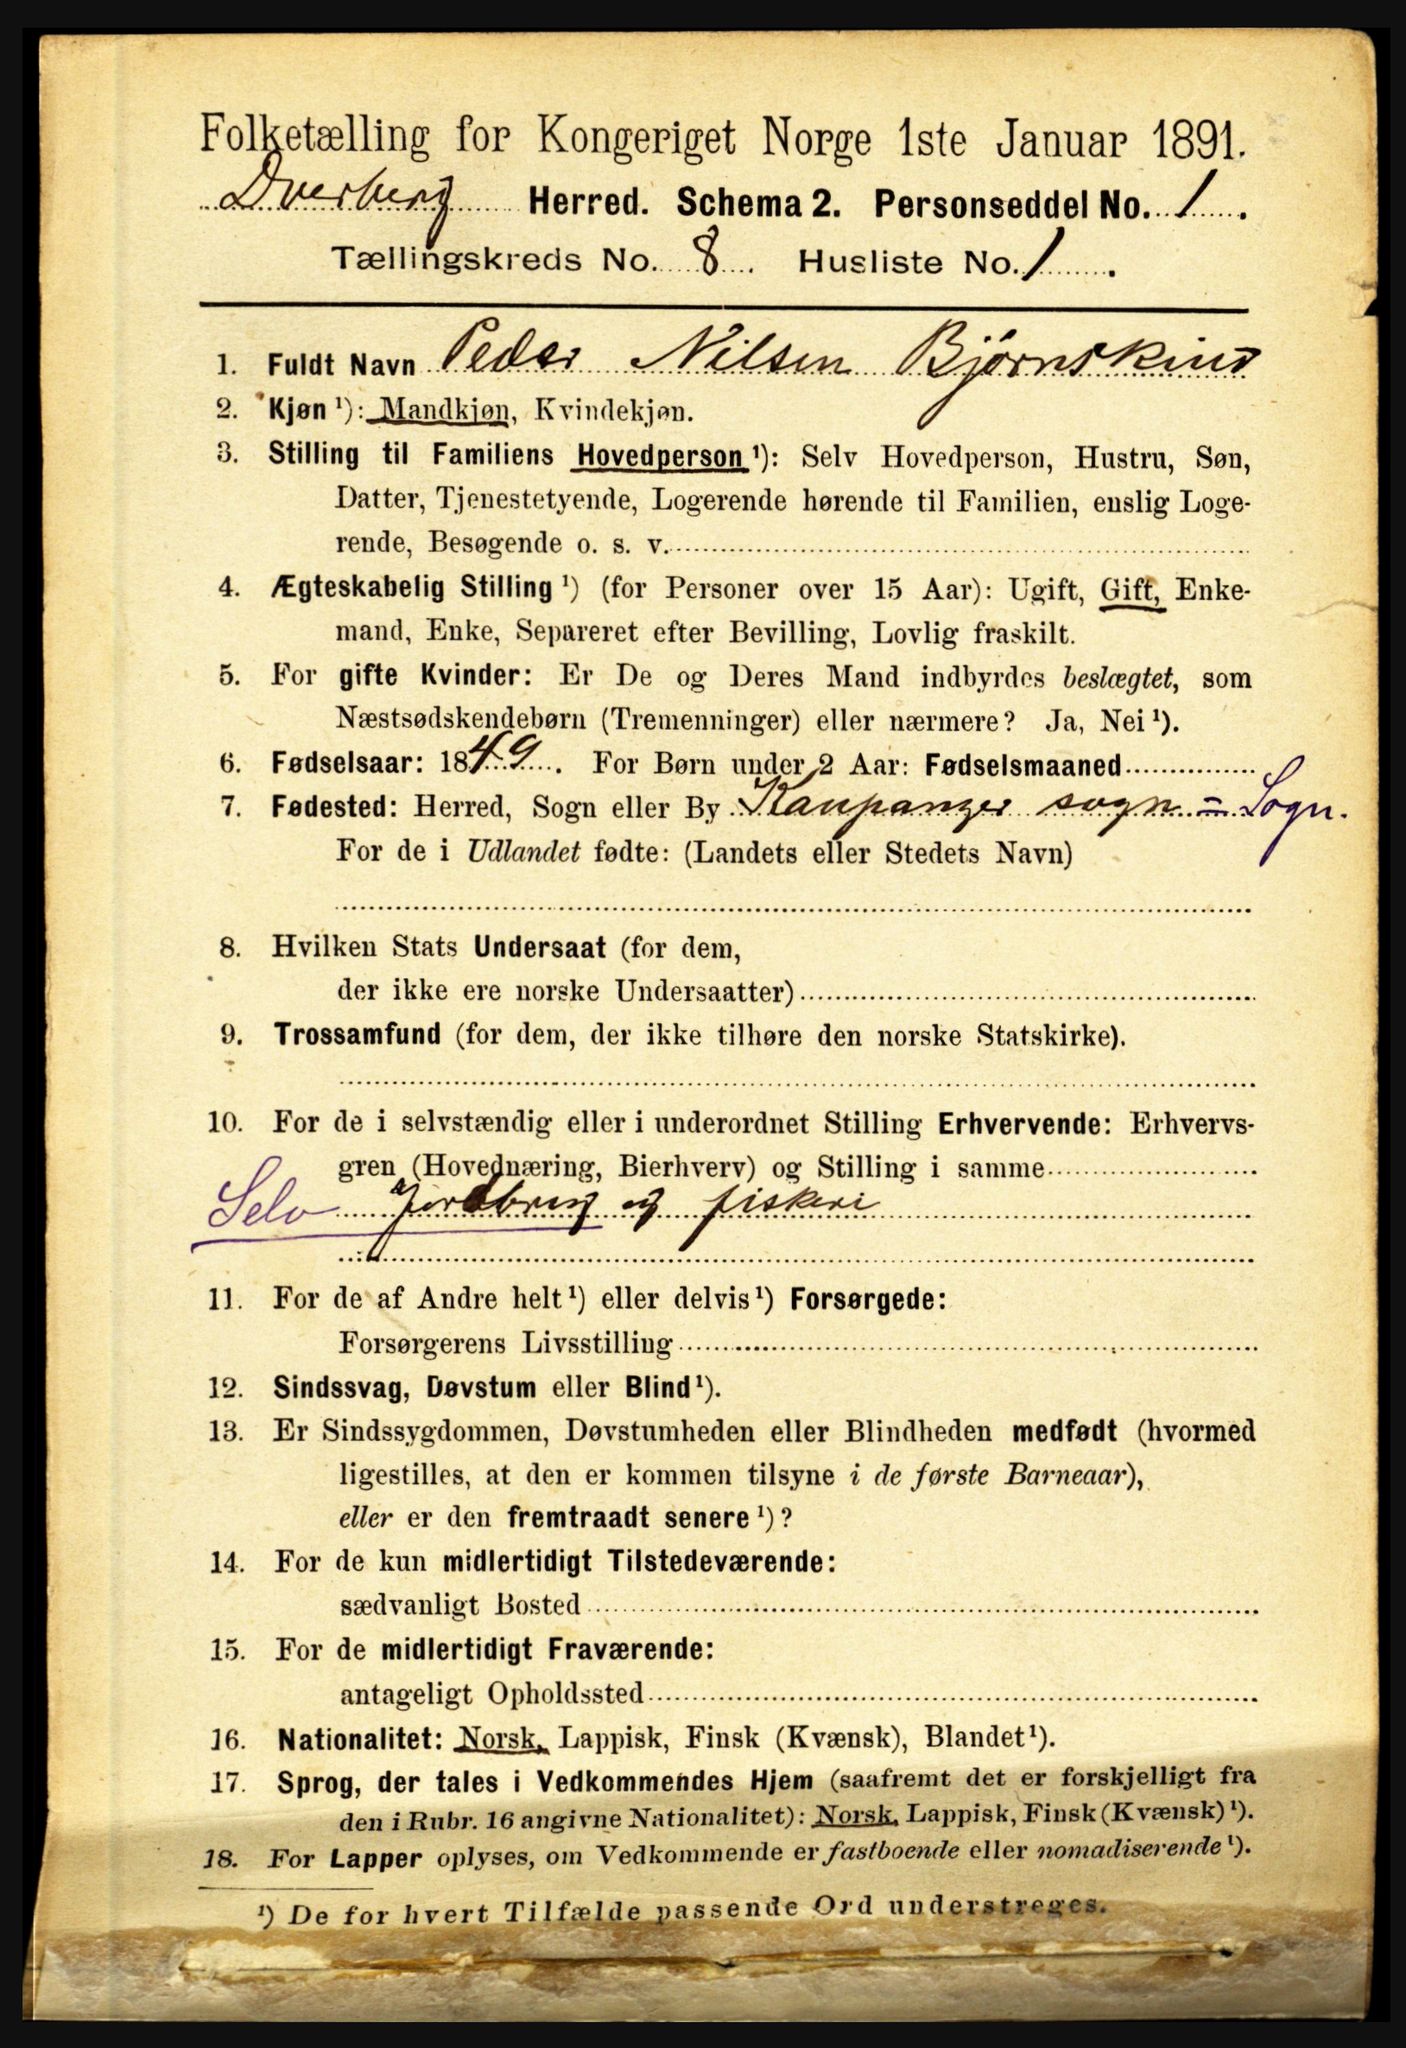 Folketælling for Kongeriget Norge 1ste Januar 1891.
Dverberg Herred. Schema 2. Personseddel No. 1.
Tællingskreds No. 8. Husliste No. 1.
1. Fuldt Navn Peder Nilsen Bjørnskind
2. Kjøn ¹): Mandkjøn, Kvindekjøn.
3. Stilling til Familiens Hovedperson ¹): Selv Hovedperson, Hustru, Søn,
Datter, Tjenestetyende, Logerende hørende til Familien, enslig Loge-
rende, Besøgende o. s. v.
4. Ægteskabelig Stilling ¹) (for Personer over 15 Aar): Ugift, Gift, Enke-
mand, Enke, Separeret efter Bevilling, Lovlig fraskilt.
5. For gifte Kvinder: Er De og Deres Mand indbyrdes beslægtet, som
Næstsødskendebørn (Tremenninger) eller nærmere? Ja, Nei ¹).
6. Fødselsaar: 1849. For Børn under 2 Aar: Fødselsmaaned
7. Fødested: Herred, Sogn eller By Kaupanger sogn = Sogn.
For de i Udlandet fødte: (Landets eller Stedets Navn)
8. Hvilken Stats Undersaat (for dem,
der ikke ere norske Undersaatter)
9. Trossamfund (for dem, der ikke tilhøre den norske Statskirke).
10. For de i selvstændig eller i underordnet Stilling Erhvervende: Erhvervs-
gren (Hovednæring, Bierhverv) og Stilling i samme
Selv Jordbrug og fiskeri
11. For de af Andre helt ¹) eller delvis ¹) Forsørgede:
Forsørgerens Livsstilling
12. Sindssvag, Døvstum eller Blind ¹).
13. Er Sindssygdommen, Døvstumheden eller Blindheden medfødt (hvormed
ligestilles, at den er kommen tilsyne i de første Barneaar),
eller er den fremtraadt senere ¹)?
14. For de kun midlertidigt Tilstedeværende:
sædvanligt Bosted
15. For de midlertidigt Fraværende:
antageligt Opholdssted
16. Nationalitet: Norsk, Lappisk, Finsk (Kvænsk), Blandet ¹).
17. Sprog, der tales i Vedkommendes Hjem (saafremt det er forskjelligt fra
den i Rubr. 16 angivne Nationalitet): Norsk, Lappisk, Finsk (Kvænsk) ¹).
18. For Lapper oplyses, om Vedkommende er fastboende eller nomadiserende ¹).
¹) De for hvert Tilfælde passende Ord understreges.